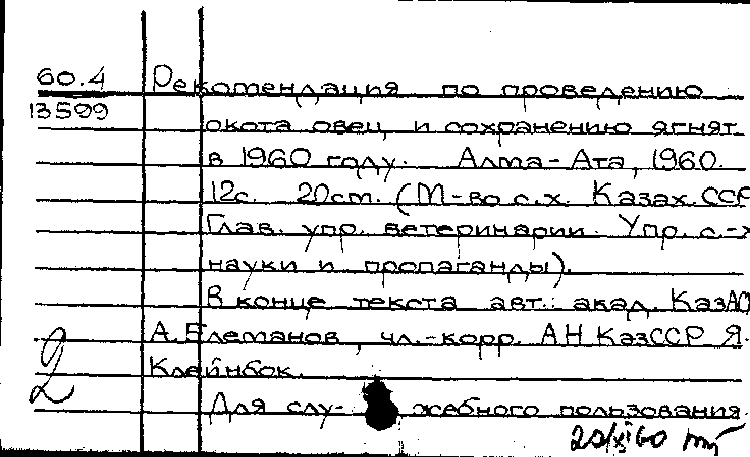 60.4 Рекомендация по проведению
13599
окота овец и сохранению ягнят
в 1960 году. Алма-Ата, 1960.
12с. 20см. (М-во с.х. Казах. ССР
Глав. упр. ветеринарии. Упр. с.-х
науки и пропаганды).
В конце текста авт.: акад. КазАС
А. Елеманов, чл.-корр. АН КазССР Я.
Клейнбок.
2
Для слу- жебного пользования